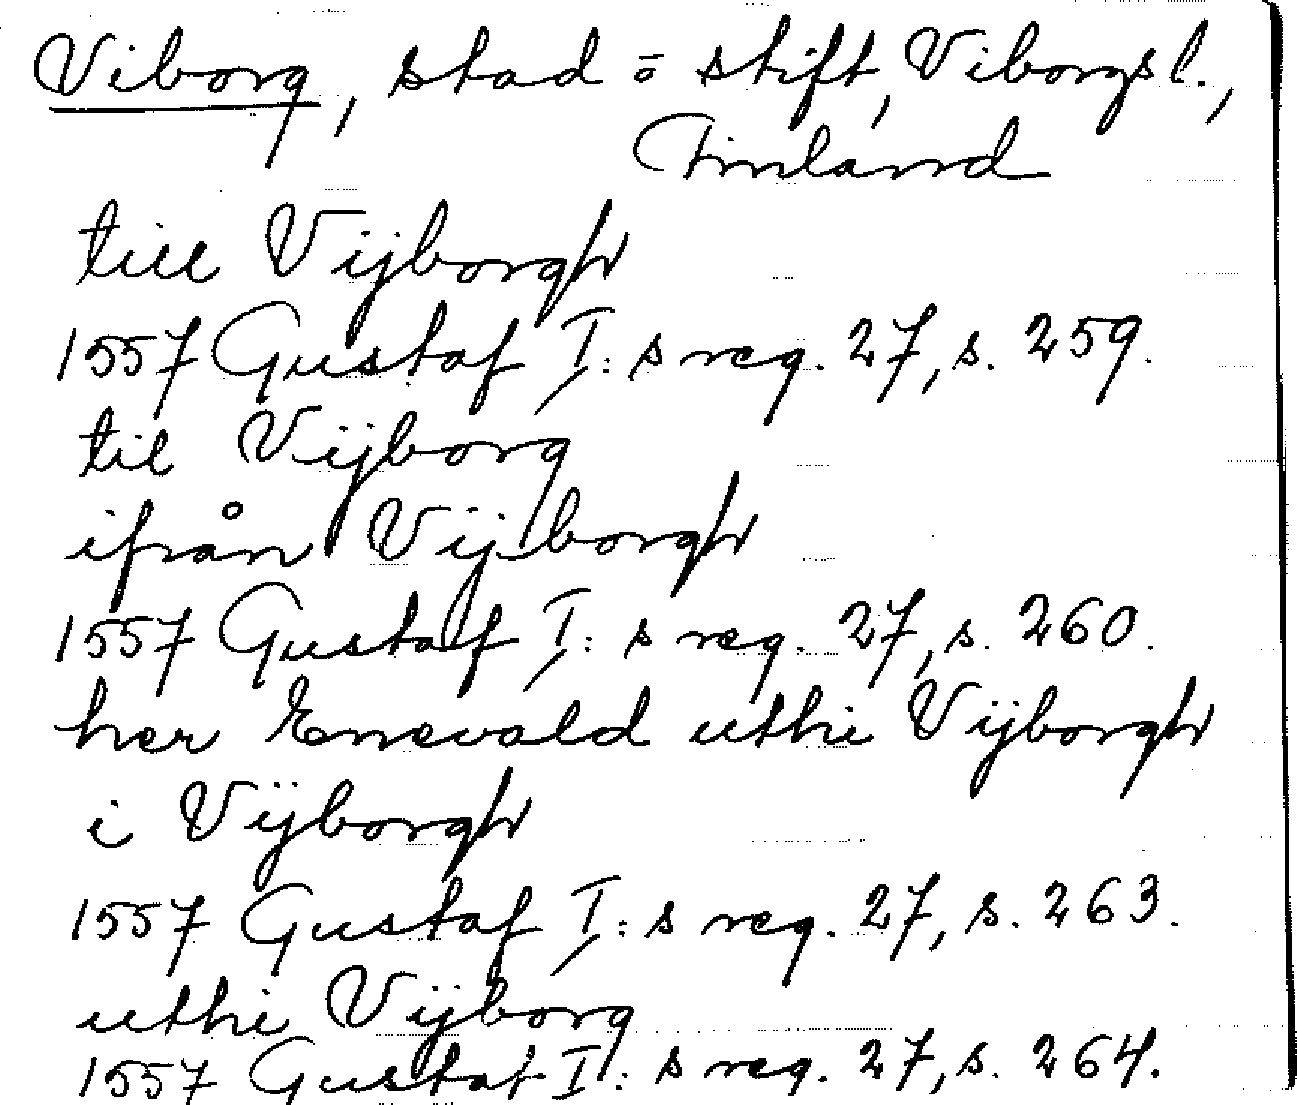 Viborg, stad o stift, Viborgs l.,
Finland
till Vijborgh
1557 Gustaf I:s reg. 27, s. 259.
til Vijborg
ifrån Vijborgh
1557 Gustaf I:s reg. 27, s. 260.
her Enevald uthi Vijborgh
i Vijborgh
1557 Gustaf I:s reg. 27, s. 263.
uthi Vijborg
1557 Gustaf I:s reg. 27, s. 264.